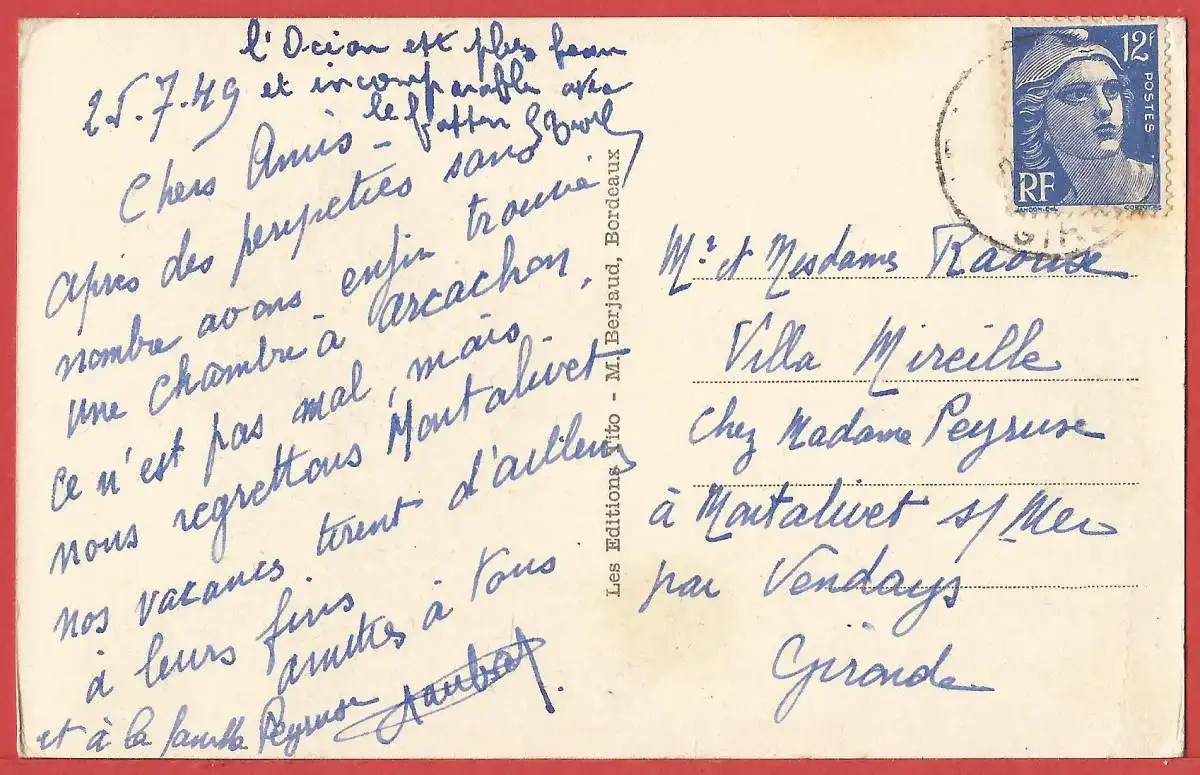 l'Océan est plus beau
et incomparable avec
le
25.7.49
Chers Amis -
après des péripéties sans
nombre avons enfin trouvé
une chambre à Arcachon,
ce n'est pas mal, mais
nous regrettons Montalivet
nos vacances tirent d'ailleurs
à leurs fins
amitiés à tous
et à la famille Peyruse
Les Editions Tito - M. Berjaud, Bordeaux
12F
POSTES
RF
GIR
Mr et Mesdames
Villa Mireille
Chez Madame Peyruse
à Montalivet s/ Mer
par Vendays
Gironde